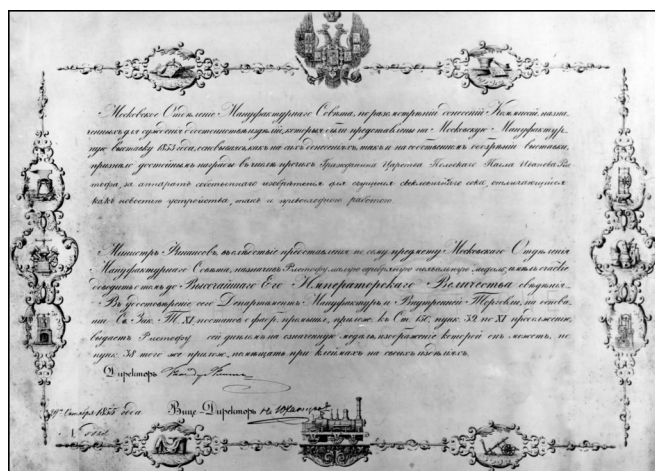 Московское Отделение Мануфактурнаго Совета, по разсмотрении донесений Коммисий, назна-
ченныхъ для суждения о достоинстве изделий, которыя были представлены на Московскую Мануфактур-
ную выставку 1853 года, основываясь какъ на сихъ донесенияхъ, такъ и на собственномъ обозрении выставки,
признало достойнымъ награды въ числе прочихъ Гражданина Царства Польскаго Павла Иванова
за аппаратъ собственнаго изобретения для сгущения свекловичнаго сока, отличающийся
какъ новостию устройства, такъ и превосходною работою.
Министръ Финансовъ, въ следствие представления по сему предмету Московскаго Отделения
Мануфактурнаго Совета, назначивъ малую серебряную медаль, имелъ счастие
доводить о томъ до Высочайшаго Его Императорскаго Величества сведения.
Въ удостоверение сего Департаментъ Мануфактуръ и Внутренней Торговли, на основа-
нии Св. Зак. Т. XI постанов. о фабр. промышл., прилож. къ Ст. 150, пунк. 32 по XI продолжению,
выдаетъ сей дипломъ на означенную медаль, изображение которой онъ можетъ, по
пунк. 38 того же прилож., помещать при клеймахъ на своихъ изделияхъ.
Директоръ
1853 года
Вице-Директоръ